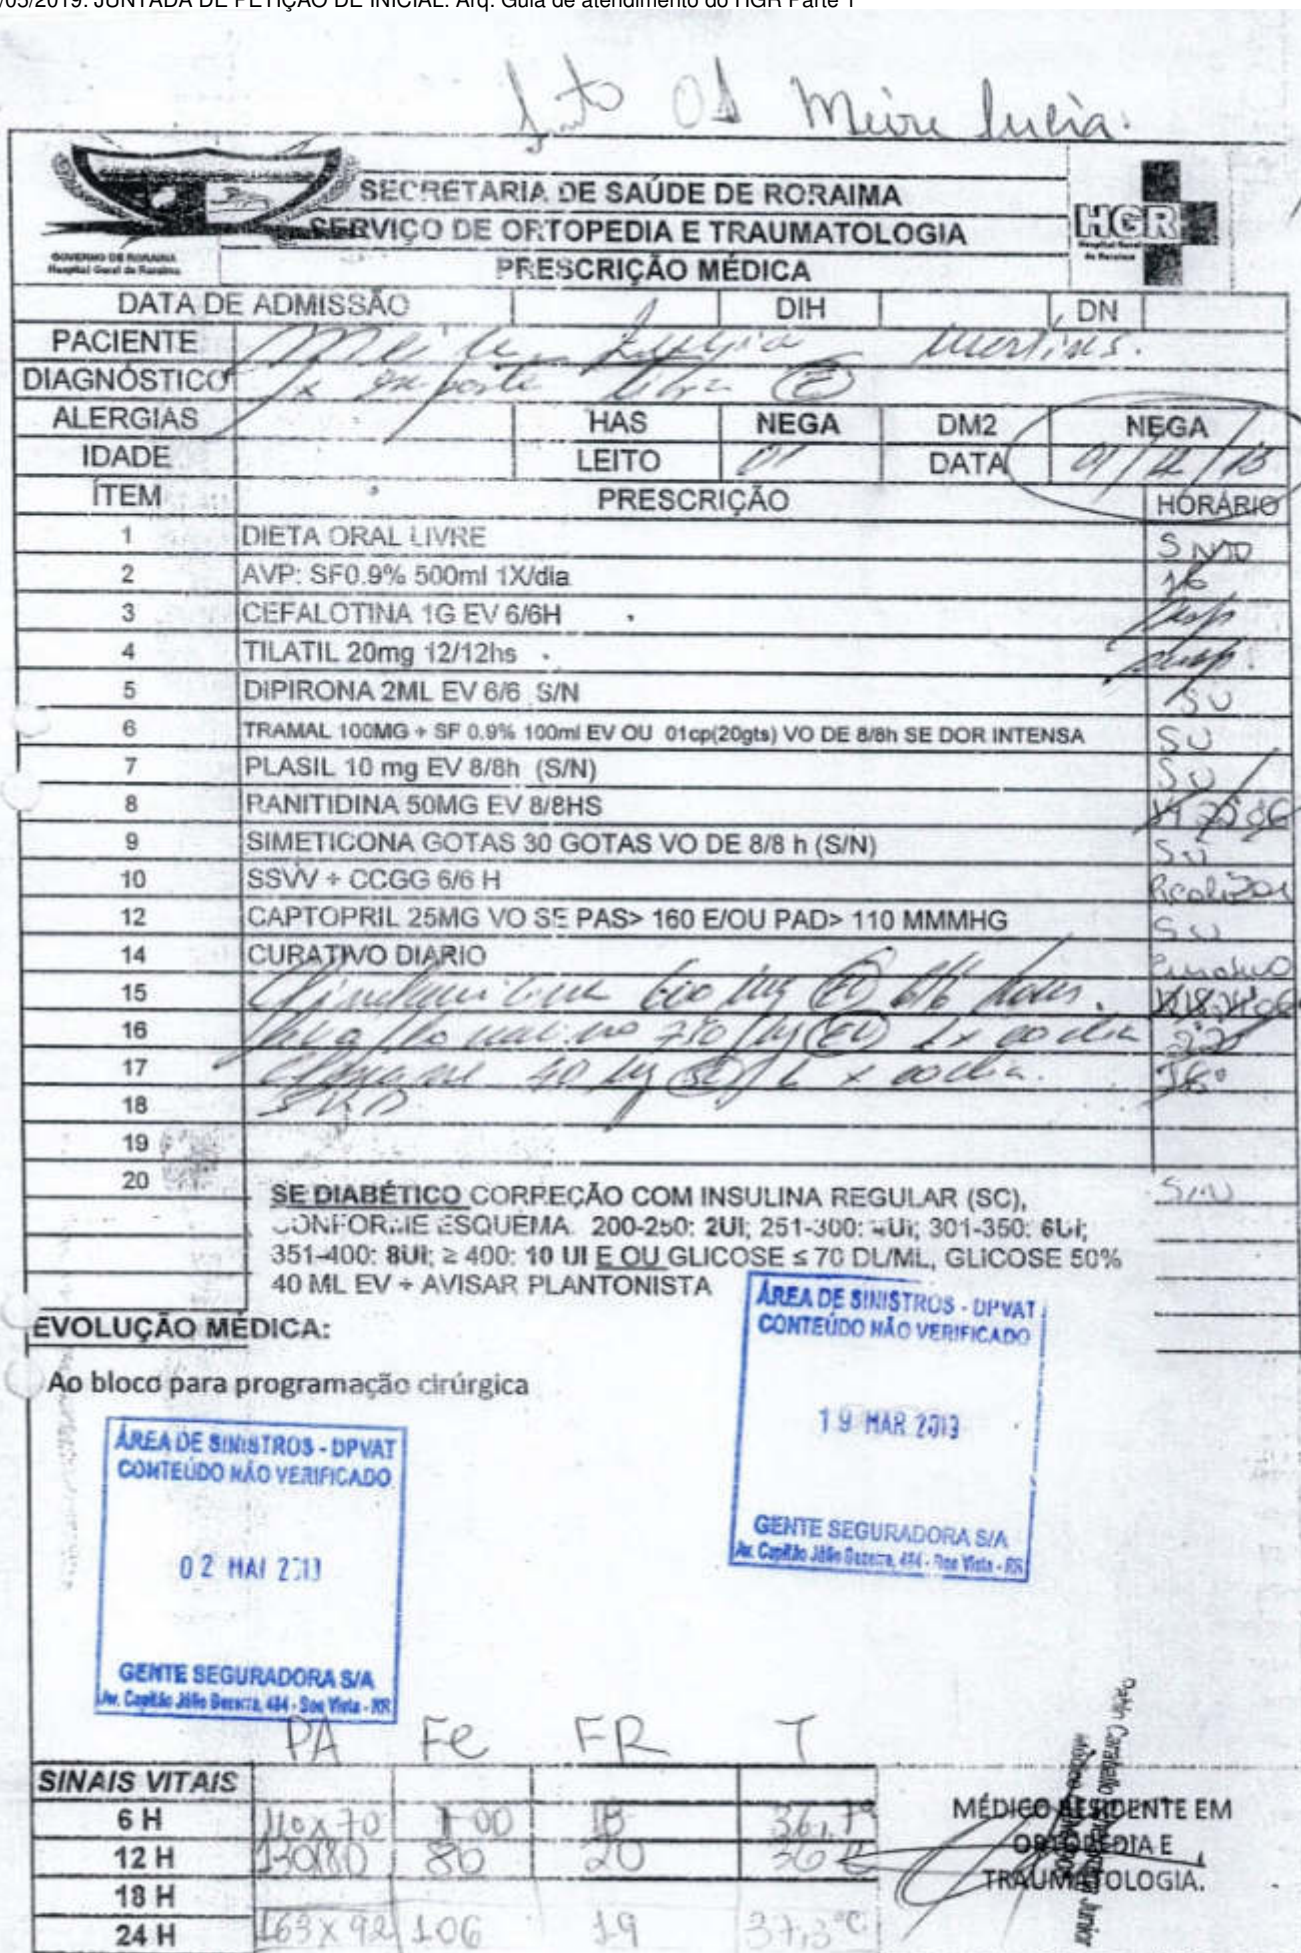 /05/2019: JUNTADA DE PETIÇÃO DE INICIAL. Arq: Guia de atendimento do HGR Parte 1
01 Meire Lucia.
SECRETARIA DE SAÚDE DE RORAIMA
SERVIÇO DE ORTOPEDIA E TRAUMATOLOGIA
PRESCRIÇÃO MÉDICA
GOVERNO DE RORAIMA
Hospital Geral de Roraima
HGR
Hospital Geral de Roraima
DATA DE ADMISSÃO DIH DN
PACIENTE Meire Lucia Martins.
DIAGNÓSTICO Fx exposta tibia (E)
ALERGIAS HAS NEGA DM2 NEGA
IDADE LEITO 01 DATA 01/12/
ÍTEM PRESCRIÇÃO HORÁRIO
1 DIETA ORAL LIVRE SND
2 AVP: SF0.9% 500ml 1X/dia 16
3 CEFALOTINA 1G EV 6/6H susp
4 TILATIL 20mg 12/12hs susp.
5 DIPIRONA 2ML EV 6/6 S/N SN
6 TRAMAL 100MG + SF 0.9% 100ml EV OU 01cp(20gts) VO DE 8/8h SE DOR INTENSA SN
7 PLASIL 10 mg EV 8/8h (S/N) SN
8 RANITIDINA 50MG EV 8/8HS
9 SIMETICONA GOTAS 30 GOTAS VO DE 8/8 h (S/N) SN
10 SSVV + CCGG 6/6 H
12 CAPTOPRIL 25MG VO SE PAS> 160 E/OU PAD> 110 MMMHG SN
14 CURATIVO DIARIO
15 Clindamicina 600 mg (EV) 6/6 horas.
16 750 mg (EV) 1x ao dia
17 Clexane 40 mg (SC) 1 x ao dia.
18
19
20 S/N
SE DIABÉTICO CORREÇÃO COM INSULINA REGULAR (SC),
CONFORME ESQUEMA. 200-250: 2UI; 251-300: 4UI; 301-350: 6UI;
351-400: 8UI; ≥ 400: 10 UI E OU GLICOSE ≤ 70 DL/ML, GLICOSE 50%
40 ML EV + AVISAR PLANTONISTA
EVOLUÇÃO MÉDICA:
Ao bloco para programação cirúrgica
ÁREA DE SINISTROS - DPVAT
CONTEÚDO NÃO VERIFICADO
19 MAR 2019
GENTE SEGURADORA S/A
Av. Capitão Júlio Bezerra, 484 - Boa Vista - RR
ÁREA DE SINISTROS - DPVAT
CONTEÚDO NÃO VERIFICADO
02 MAI 2019
GENTE SEGURADORA S/A
Av. Capitão Júlio Bezerra, 484 - Boa Vista - RR
PA FC FR T
SINAIS VITAIS
6 H 110x70 100 18 36,7º
12 H 130x80 80 20 36
18 H
24 H 163x92 106 19 37,3°C
MÉDICO RESIDENTE EM
ORTOPEDIA E
TRAUMATOLOGIA.